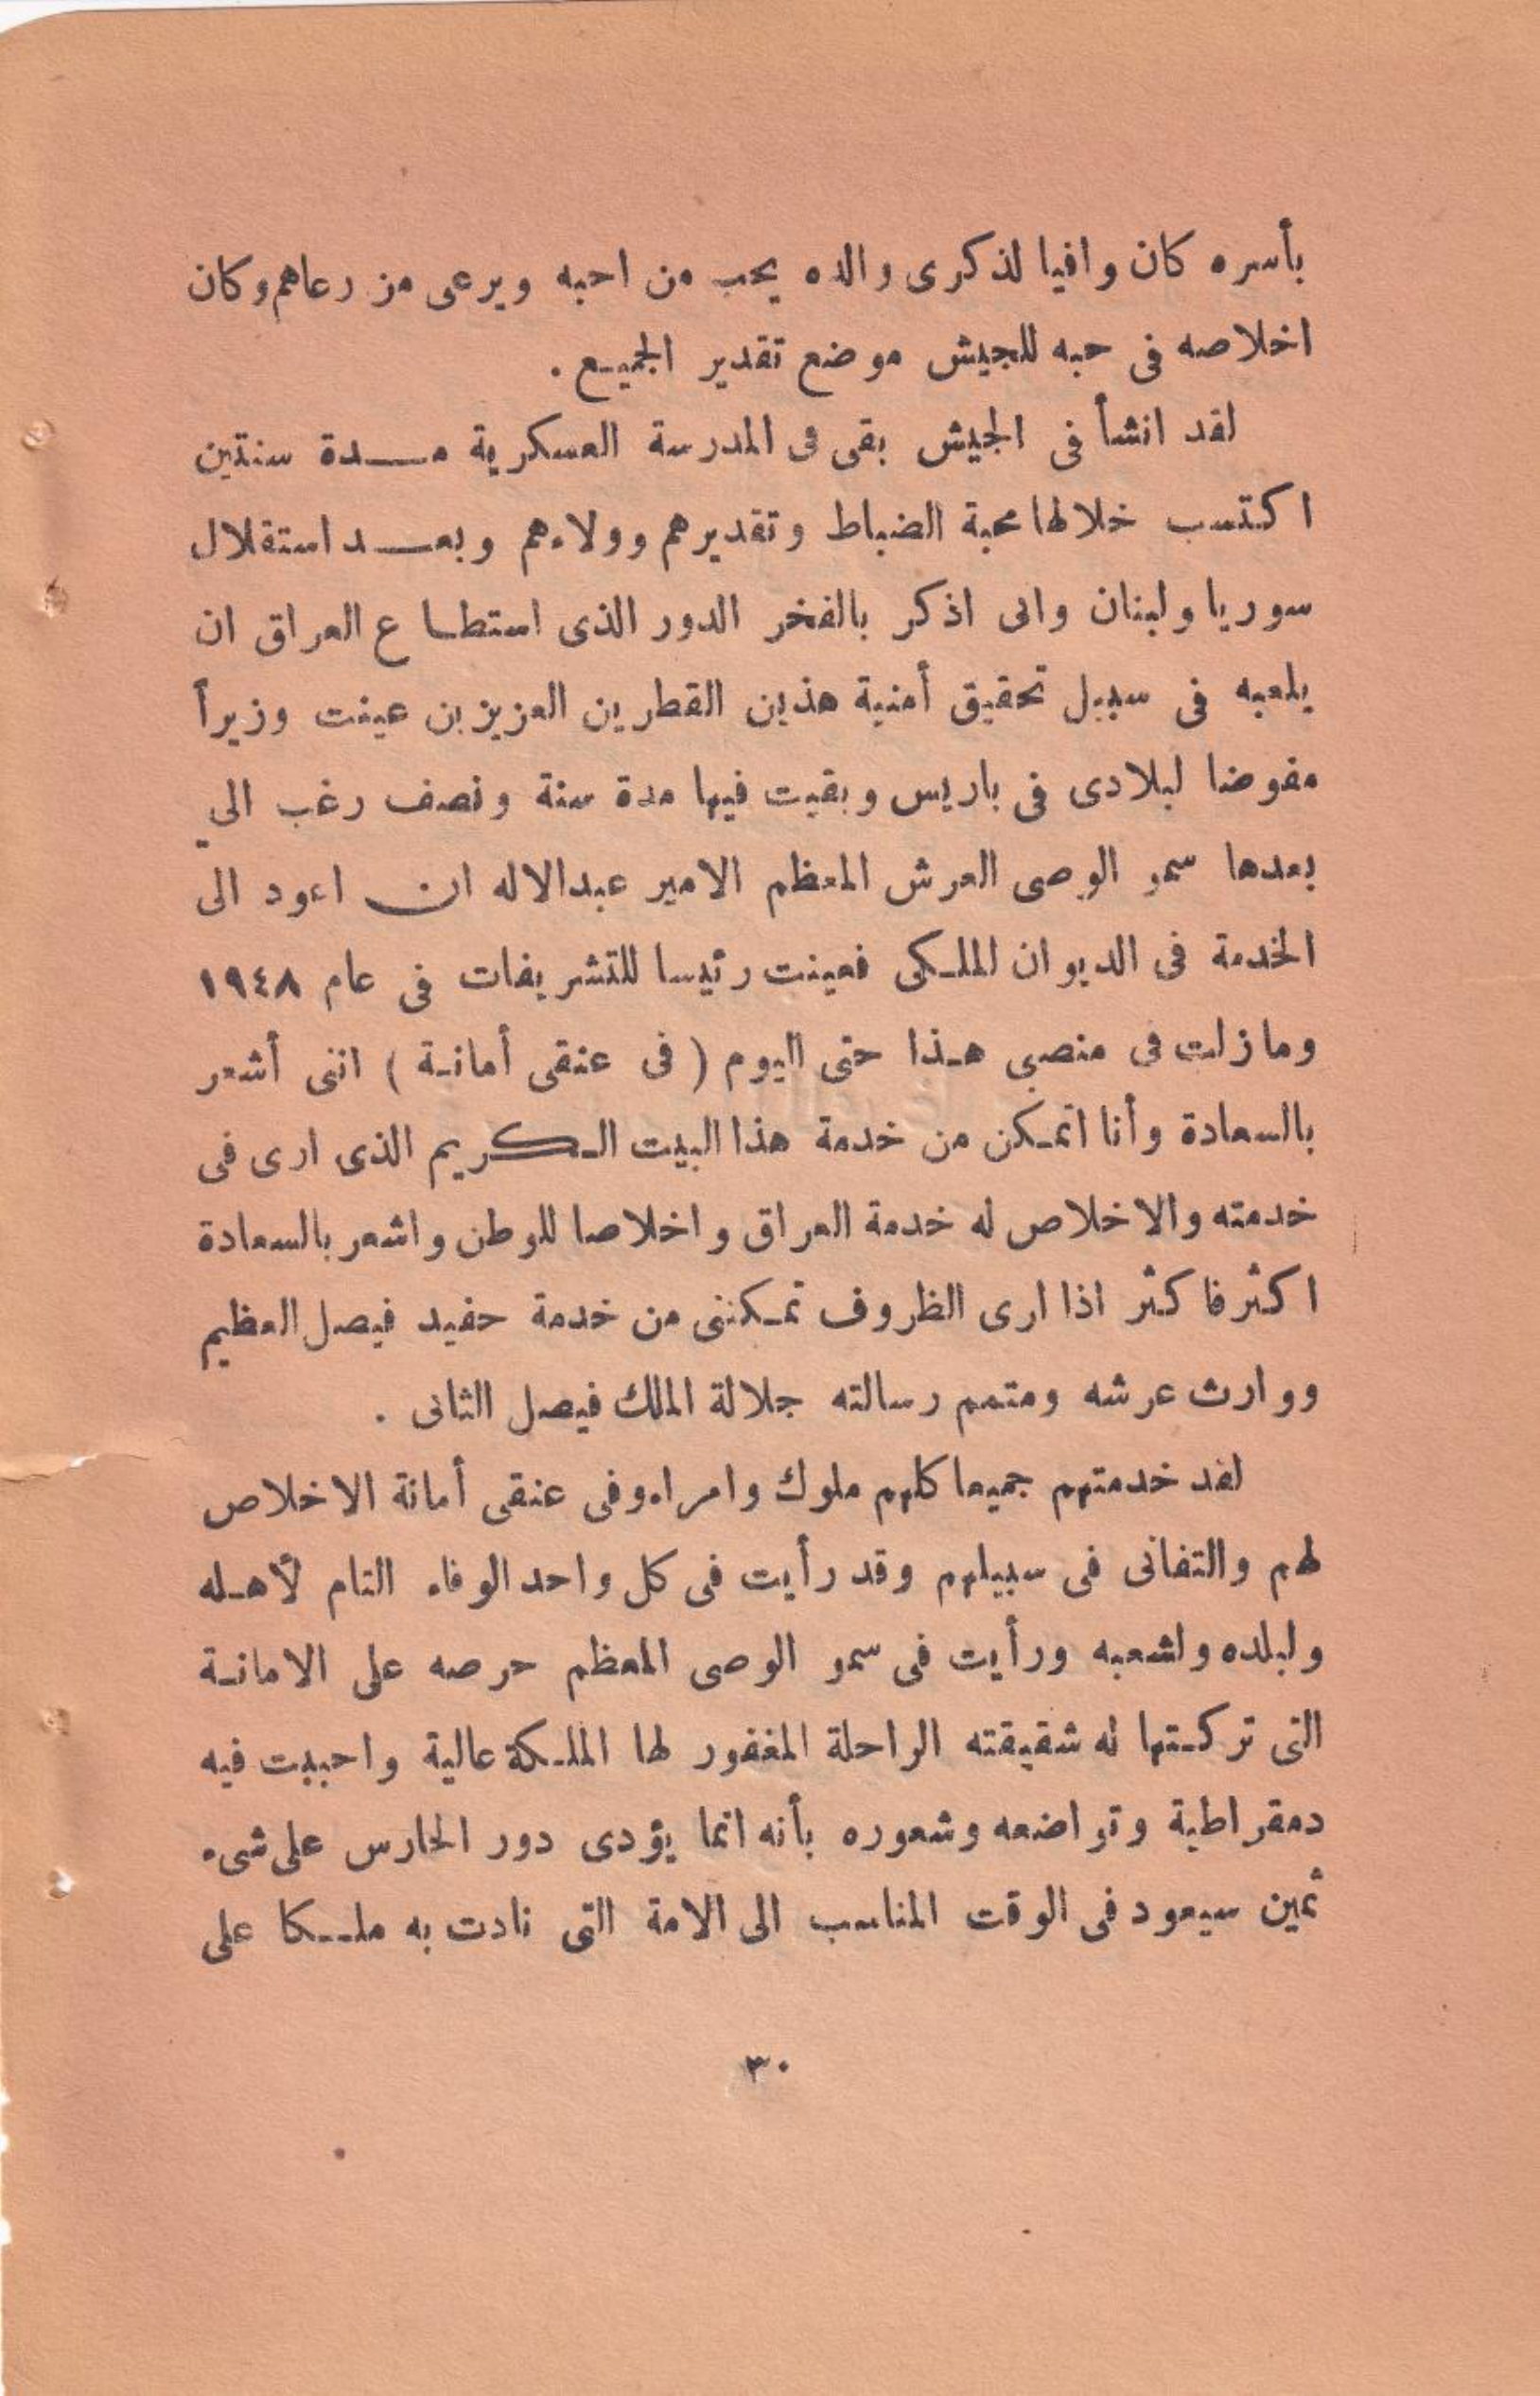 بأسره كان وافيا لذكرى والده يحب من احبه ويرعى من رعاهم وكان
اخلاصه فى حبه للجيش موضع تقدير الجميع .
لقد انشأ فى الجيش بقى فى المدرسة العسكرية مدة سنتين
اكتسب خلالها محبة الضباط وتقديرهم وولاءهم وبعد استقلال
سوريا ولبنان وانى اذكر بالفخر الدور الذى استطاع العراق ان
يلعبه فى سبيل تحقيق أمنية هذين القطرين العزيزين عينت وزيراً
مفوضا لبلادى فى باريس وبقيت فيها مدة سنة ونصف رغب الي
بعدها سمو الوصى العرش المعظم الامير عبدالاله ان اعود الى
الخدمة فى الديوان الملكى فعينت رئيسا للتشريفات فى عام ١٩٤٨
ومازلت فى منصبى هذا حتى اليوم ( فى عنقى أمانة ) اننى أشعر
بالسعادة وأنا اتمكن من خدمة هذا البيت الكريم الذى ارى فى
خدمته والاخلاص له خدمة العراق واخلاصا للوطن واشعر بالسعادة
اكثر فاكثر اذا ارى الظروف تمكننى من خدمة حفيد فيصل العظيم
ووارث عرشه ومتمم رسالته جلالة الملك فيصل الثانى .
لقد خدمتهم جميعا كلهم ملوك وامراء وفى عنقى أمانة الاخلاص
لهم والتفانى فى سبيلهم وقد رأيت فى كل واحد الوفاء التام لأهله
ولبلده ولشعبه ورأيت فى سمو الوصى المعظم حرصه على الامانة
التى تركتها له شقيقته الراحلة المغفور لها الملكة عالية واحببت فيه
دمقراطية وتواضعه وشعوره بأنه انما يؤدى دور الحارس على شىء
ثمين سيعود فى الوقت المناسب الى الامة التى نادت به ملكا على
٣٠